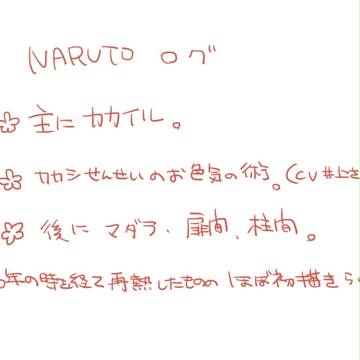 NARUTO ログ
主に カカイル。
カカシせんせいのお色気の術。(CV井上さ
後に マダラ、扉間、柱間。
年の時を経て再熱したものの ほぼ初描きら